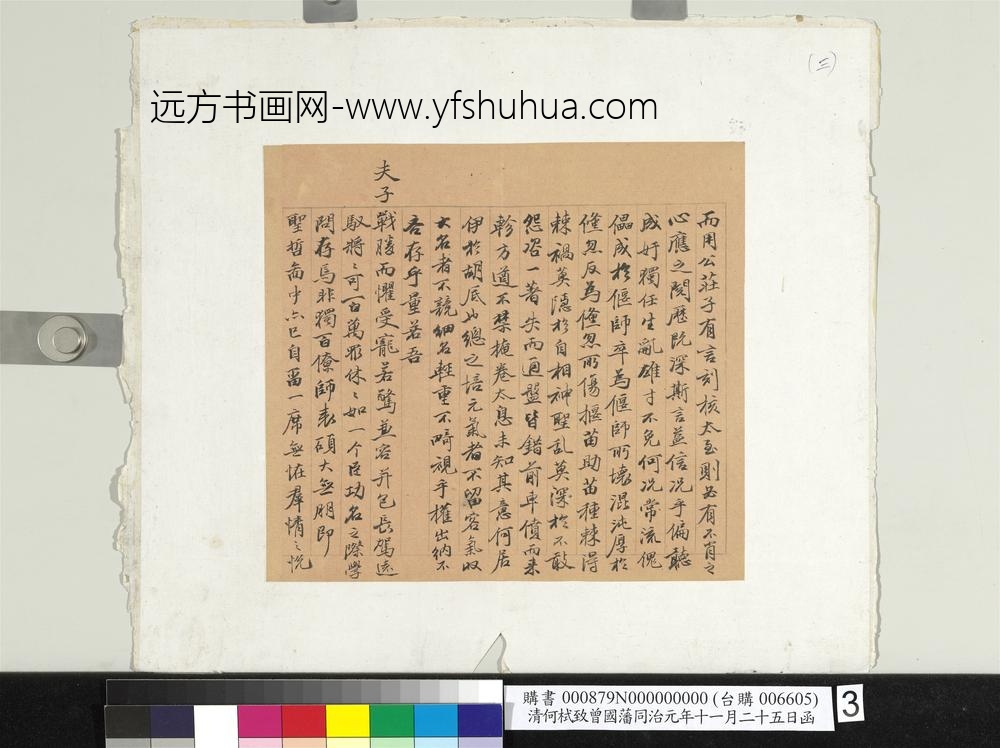 (三)
远方书画网-www.yfshuhua.com
而用公莊子有言刻核太至則必有不肖之
心應之閱歷既深斯言益信況乎偏聽
成奸獨任生亂雄才不免何況常流傀
儡成於偃師卒為偃師所壞渾沌厚於
儵忽反為儵忽所傷揠苗助苗種棘得
棘禍莫憯於自相神聖亂莫深於不敢
怨咨一著失而通盤皆錯前車僨而來
軫方遒不禁掩卷太息未知其意何居
伊於胡底也總之培元氣者不留客氣收
大名者不競細名輕重不畸視乎權出納不
吝存乎量若吾
夫子
戰勝而懼受寵若驚兼容并包長駕遠
馭將將可百萬彌休休如一个臣功名之際學
問存焉非獨百僚師表碩大無朋即
聖哲面中亦已自留一席無怪羣情之悅
購書 000879N000000000 (台購 006605)
清何栻致曾國藩同治元年十一月二十五日函
3